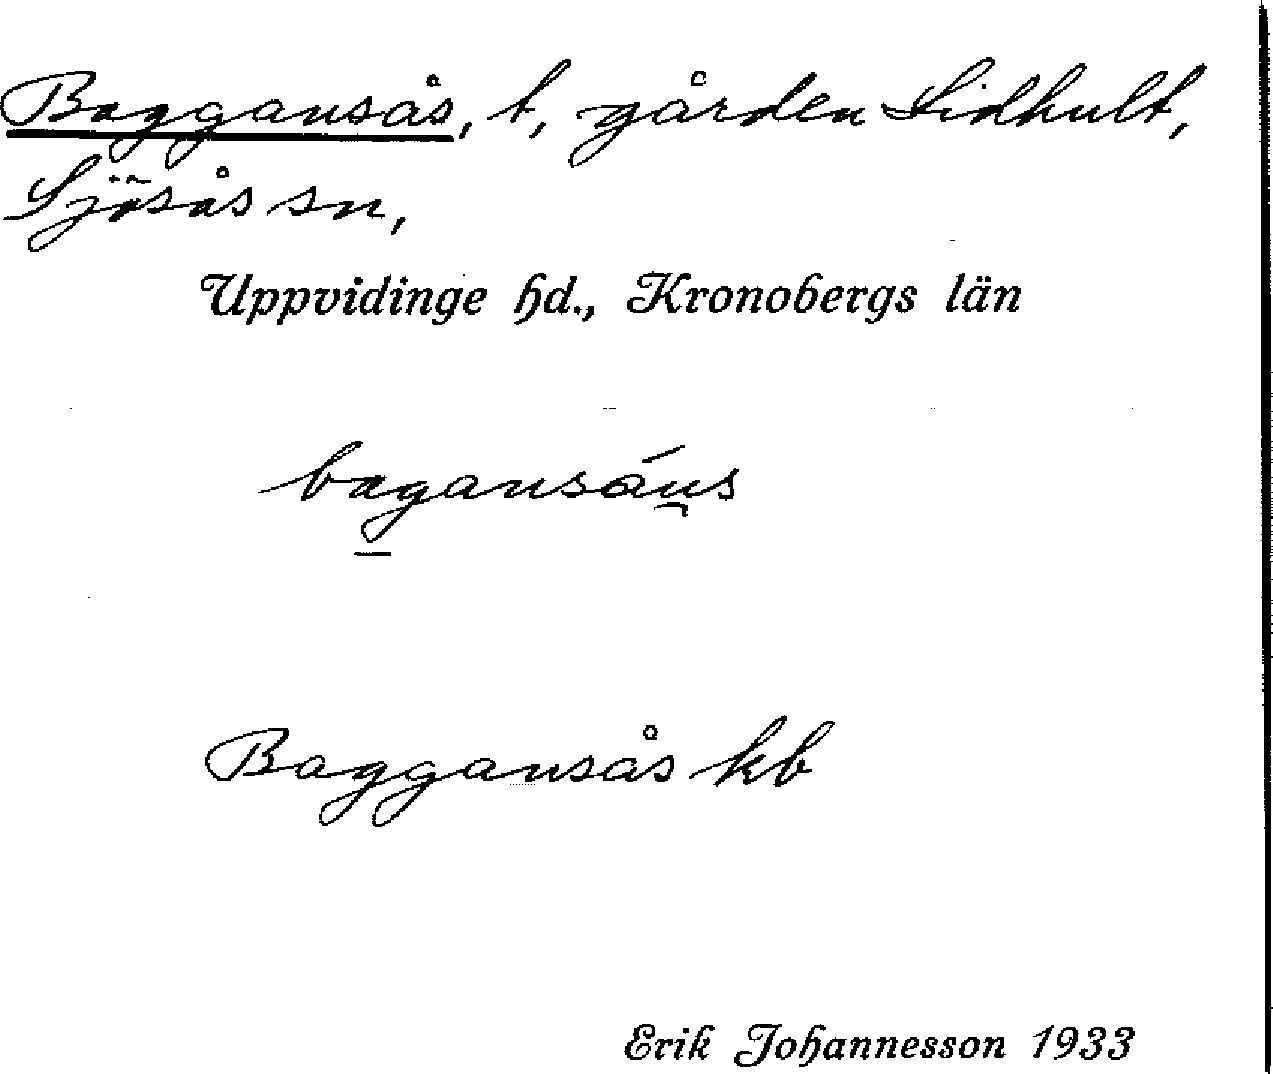 Baggansås, t, gården Lidhult,
Sjösås sn,
Uppvidinge hd., Kronobergs län
bagansáu̯s
Baggansås kb
Erik Johannesson 1933